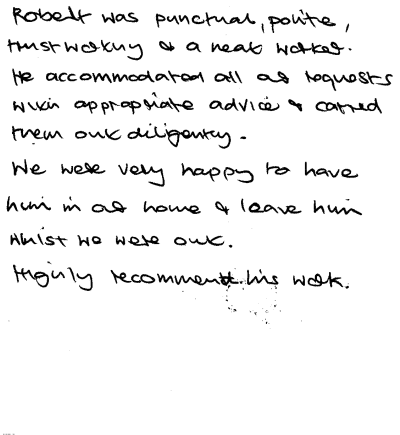 Robert was punctual, polite,
trustworthy & a neat worker.
He accommodated all our requests
with appropriate advice & carried
them out diligently.
We were very happy to have
him in our home & leave him
whilst we were out.
Highly recommend his work.